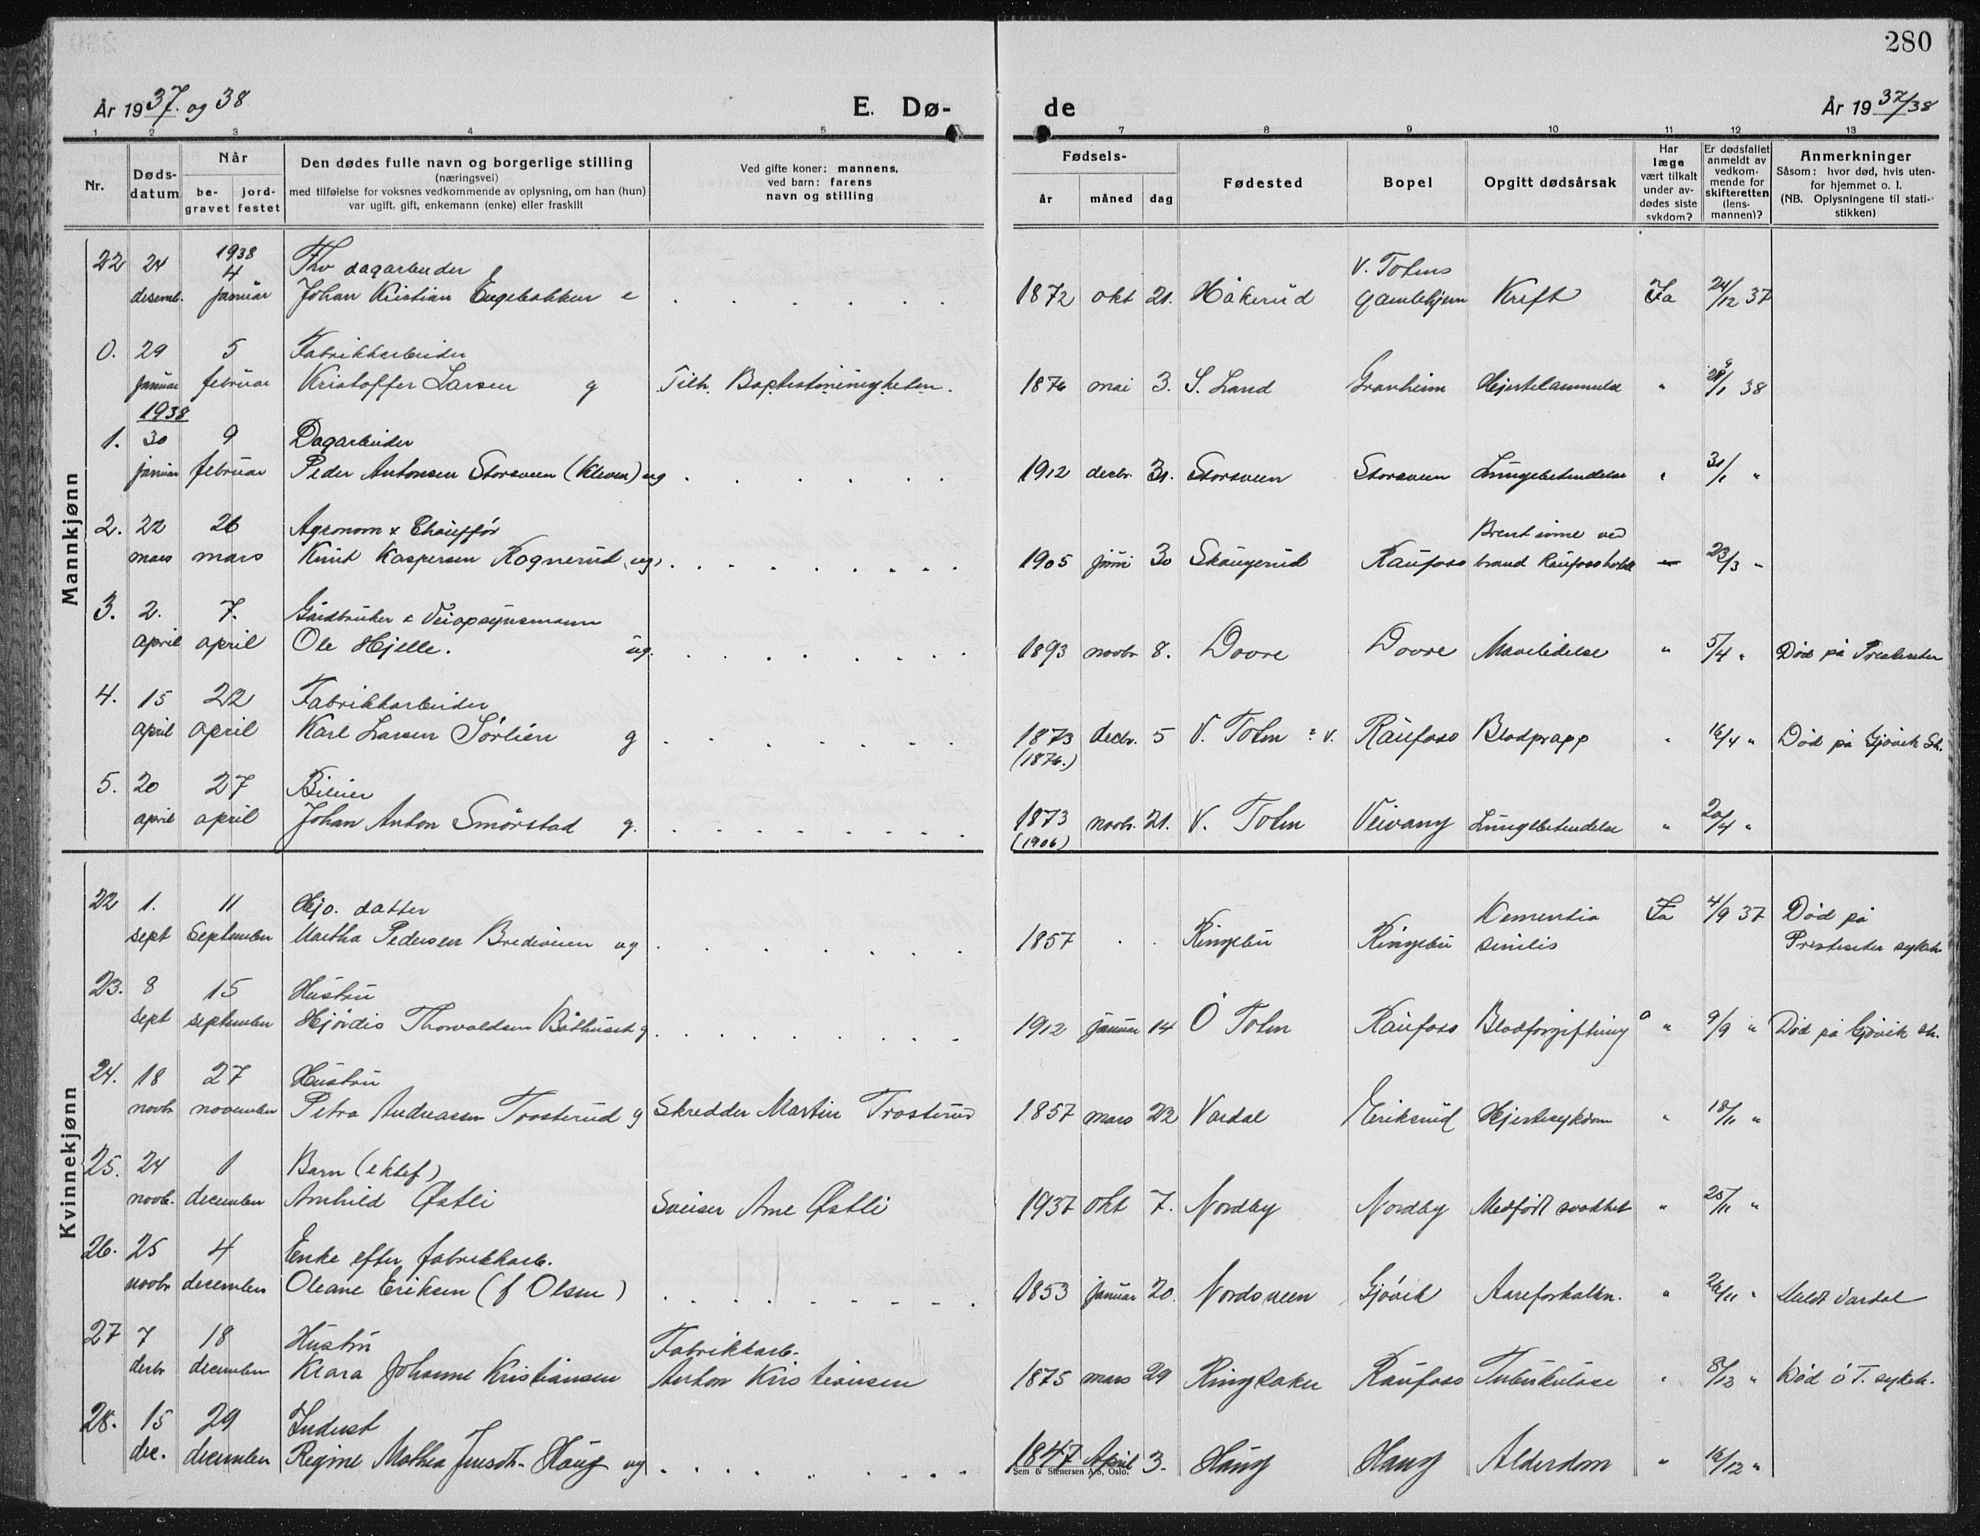 280
År 1937. og 38
E. Dø-
de
År 1937/38
1 2 3 4 5 7 8 9 10 11 12 13
Nr.
Døds-
datum
Når
be-
gravet
jord-
festet
Den dødes fulle navn og borgerlige stilling
(næringsvei)
med tilføielse for voksnes vedkommende av oplysning, om han (hun)
var ugift, gift, enkemann (enke) eller fraskilt
Ved gifte koner: mannens,
ved barn: farens
navn og stilling
Fødsels-
år måned dag
Fødested
Bopel
Opgitt dødsårsak
Har
læge
vært tilkalt
under av-
dødes siste
sykdom?
Er dødsfallet
anmeldt av
vedkom-
mende for
skifteretten
(lens-
mannen)?
Anmerkninger
Såsom: hvor død, hvis uten-
for hjemmet o. l.
(NB. Oplysningene til stati-
stikken)
Mannkjønn
1938
22 24 4 Fhv dagarbeider V. Totens
desemb. januar Johan Kristian Engebakken e 1872 okt 21. Håkerud gamlehjem Kreft Ja 24/12 37
0. 29 5 Fabrikkarbeider
januar februar Kristoffer Larsen g Tilh. Baptistmenigheten. 1876 mai 3. S. Land Granheim Hjertelammelse " 28/1 38
1938
1. 30 9 Dagarbeider
januar februar Peder Antonsen Storsveen (Kleven) ug 1912 decbr. 31. Storsveen Storsveen Lungebetendelse " 31/1 "
2. 22 26 Agronom & Chauffør Brent inne ved
mars mars Knut Kaspersen Rognerud (ug) 1905 juni 30 Skaugerud Raufoss brand Raufoss hotell — 23/3 "
3. 2. 7. Gårdbruker & Veiopsynsmann
april april Ole Hjelle. ug. 1893 novbr 8. Dovre Dovre Mavelidelse " 5/4 " Død på Presteseter
4. 15 22 Fabrikkarbeider
april april Karl Larsen Sørlien g 1873 decbr. 5 V. Toten ? v. Raufoss Blodpropp " 16/4 " Død på Gjøvik Sh.
(1876.)
5. 20 27 Bileier
april april Johan Anton Smørstad g. 1873 novbr. 21. V. Toten Veivang Lungebetendelse " 20/4 "
(1906)
Kvinnekjønn
22 1. 11 Hjv. datter Dementia Ja 4/9 37 Død på
sept September Martha Pedersen Bredeveien ug 1857 Ringebu Ringebu senilis Presteseter sykeh.
23. 8 15 Hustru
sept september Hjørdis Thorvaldsen Båthuset g 1912 januar 14 Ø Toten Raufoss Blodforgiftning " 9/9 " Død på Gjøvik sh.
24. 18 27 Hustru
novbr november Petra Andreassen Trosterud g Skredder Martin Trosterud 1857 mars 22 Vardal Eriksrud Hjertesykdom " 18/11 "
25. 24 1 Barn (ektef)
novb. december Arnhild Østli Sveiser Arne Østli 1937 okt 7. Nordby Nordby Medfødt svakhet " 25/11 "
26. 25 4 Enke efter fabrikkarb.
novbr december Oleane Eriksen (f Olsen) 1853 januar 20. Nordsveen Gjøvik Aareforkalkn. " 26/11 " Meldt Vardal
27 7 18 Hustru Fabrikkarb.
decbr december Klara Johanne Kristiansen Anton Kristiansen 1875 mars 29 Ringsaker Raufoss Tuberkulose " 8/12 " Død Ø T. sykeh.
28. 15 29 Inderst
dec. december Regine Mathea Jensdtr. Haug ug 1847 April 3. Haug Haug Alderdom " 16/12 "
Sem & Stenersen A/S, Oslo.